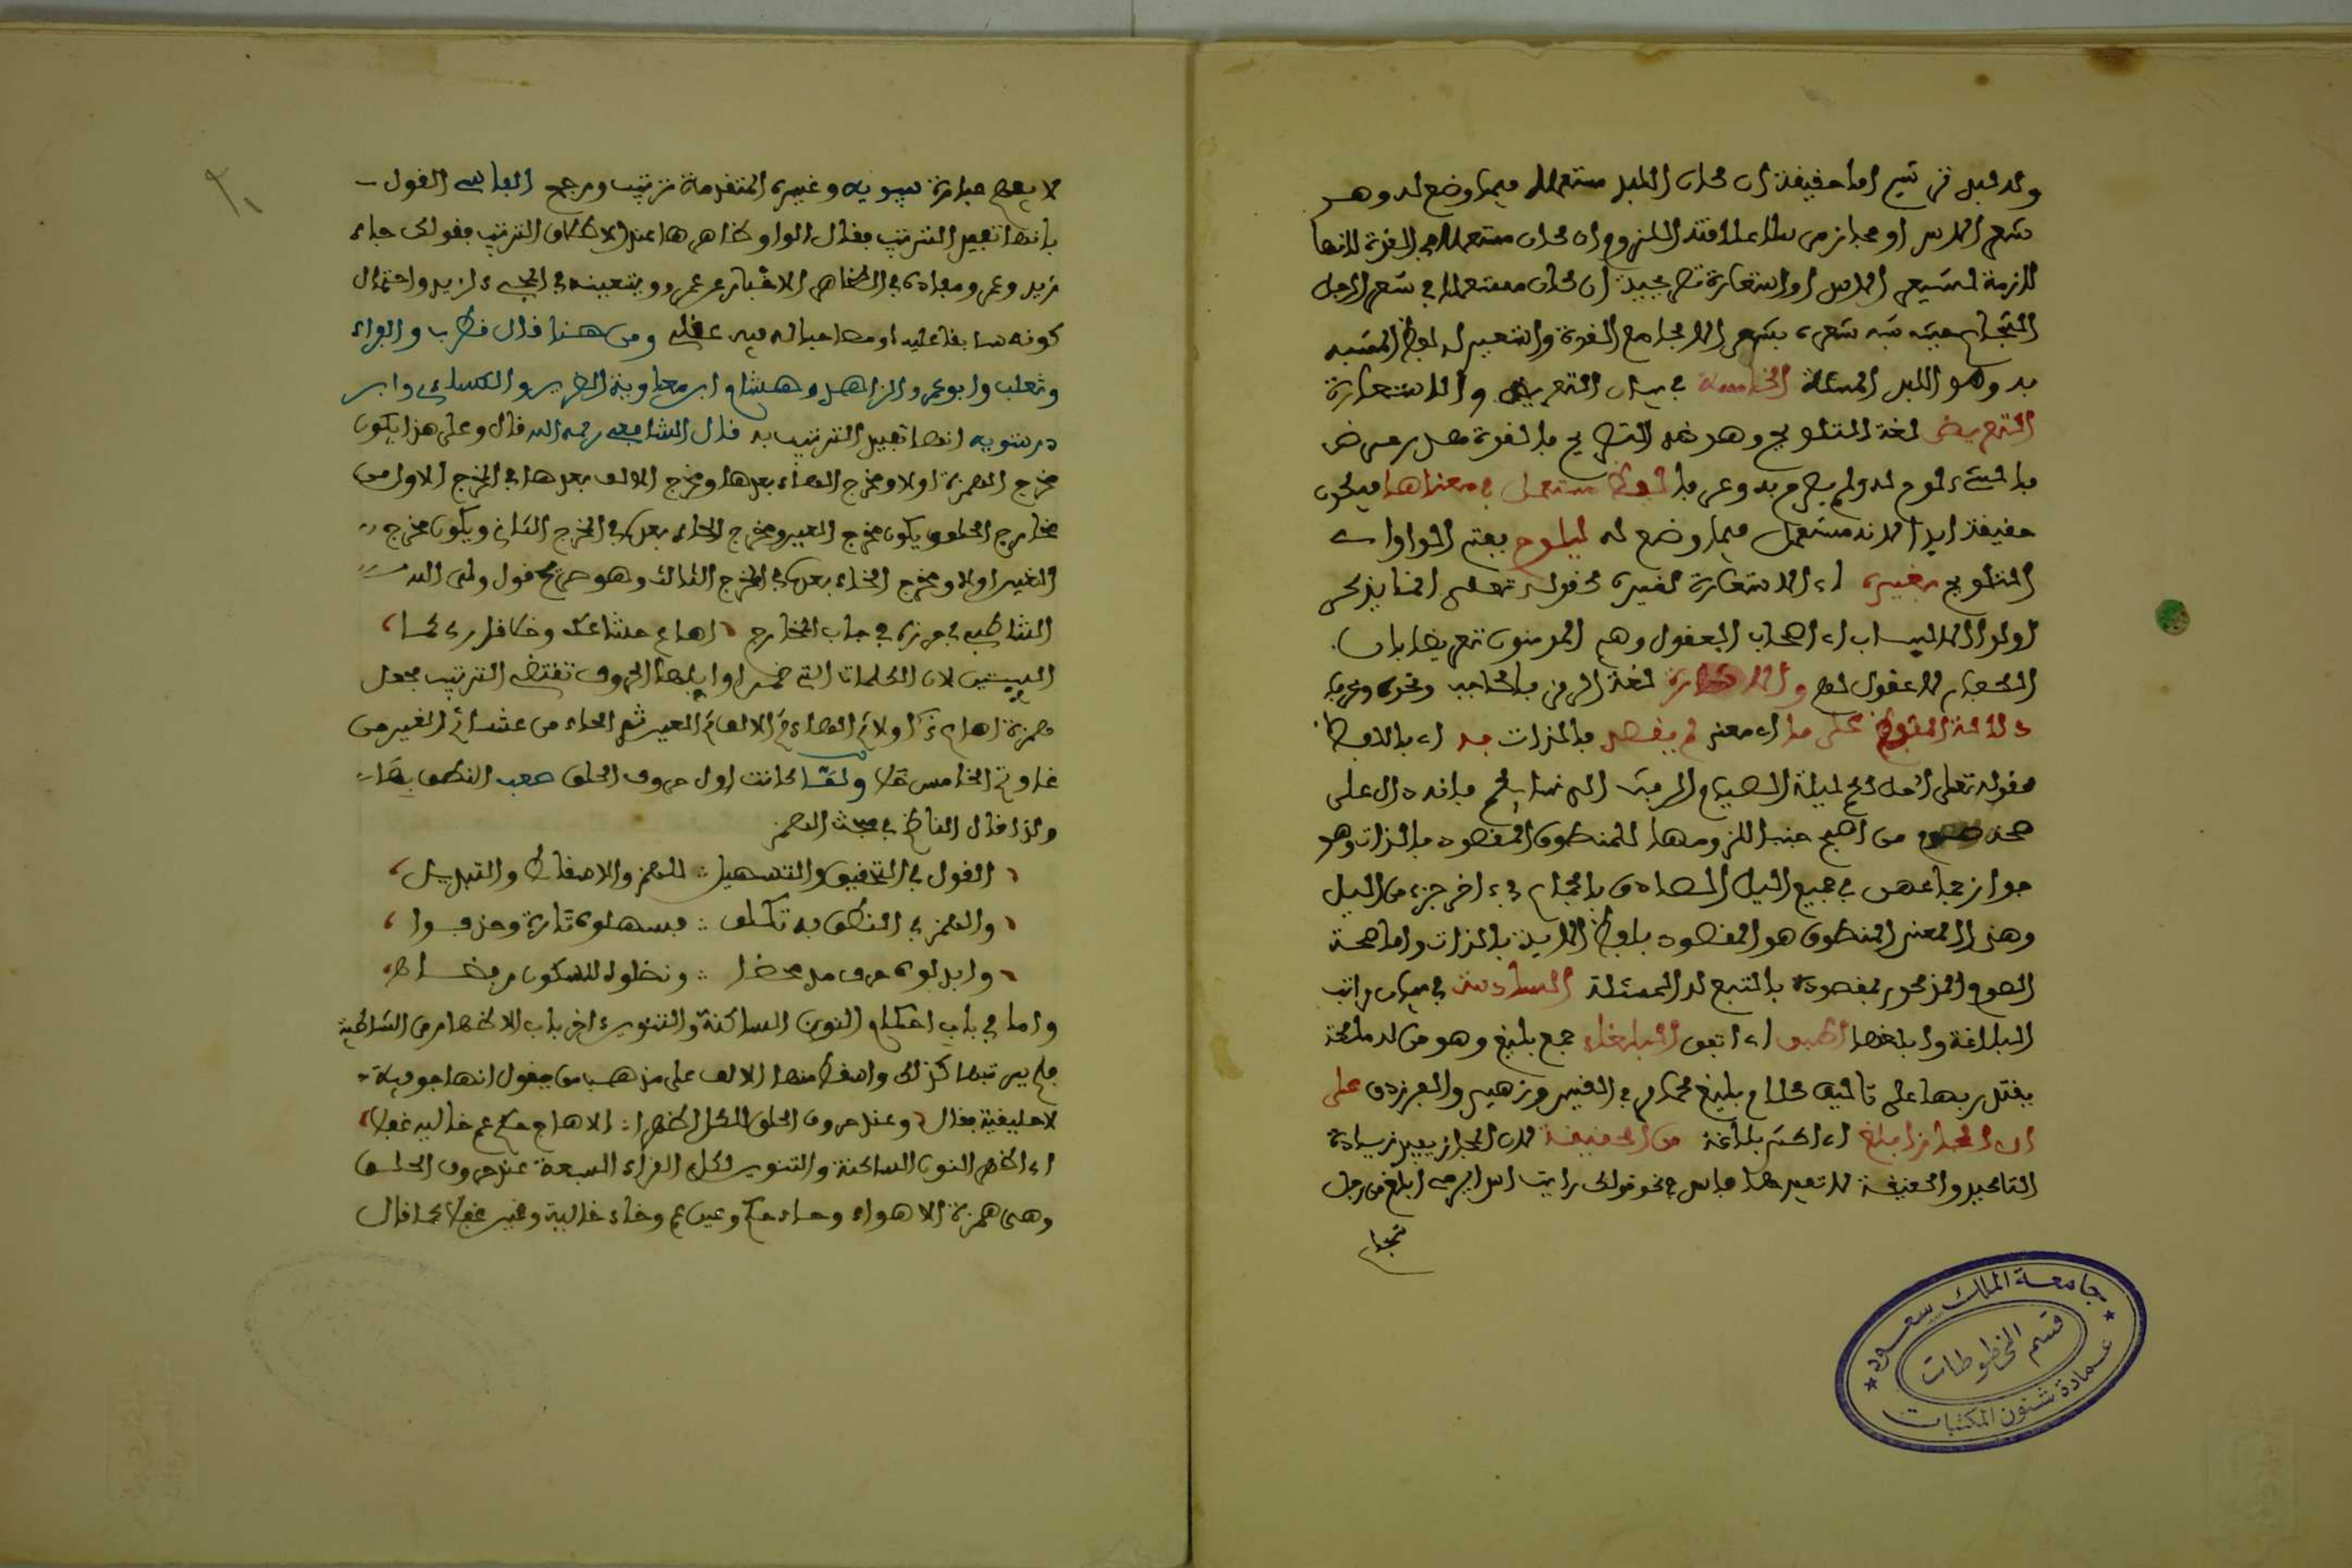 ولد لبد فى تيسير اما حقيقة ان كان اللبد مستعملا فيما وضع له وهو
شعر الاسد او مجاز مرسل علاقته اللزوم ان كان مستعملا فى القوة لانها
لازمة لشعر الاسد او استعارة تصريحية ان كان مستعملا فى شعر الرجل
الشجاع شبه شعره بشعر الاسد بجامع القوة واستعير له لفظ المشبه
به وهو اللبد المسئلة الخامسة فى بيان التعريض والاستعارة
التعريض لغة التلويح وهو ضد التصريح
بالشىء لوح له ولم يصرح به وعرفا لفظ مستعمل فى معناها فيكون
حقيقة ابدا لانه مستعمل فيما وضع له ليلوح بفتح الواو
التلويح بغيره اى الاستعارة لغيره كقوله تعلى انما يذكر
اولوا الالباب اى اصحاب العقول وهم المومنون تعريضا بان
الكفار لا عقول لهم والاشارة لغة الرمز بالحاجب ونحوه وعرفا
دلالة اللفظ على ما اى معنى لم يقصد بالذات به اى باللفظ
كقوله تعلى احل لكم ليلة الصيام الرفث الى نسائكم فانه دال على
صحة صوم من اصبح جنبا للزومها للمنطوق المقصود بالذات وهو
جواز جماعهن فى جميع الليل الصادق بالجماع فى ءاخر جزء من الليل
وهذا المعنى المنطوق هو المقصود بلفظ الاية بالذات واما صحة
الصوم المذكور فمقصودة بالتبع له المسئلة السادسة فى بيان مراتب
البلاغة وابلغها اطبق اى اتفق البلغاء جمع بليغ وهو من له ملكة
يقتدر بها على تاليف كلام بليغ كامرئ القيس وزهير والفرزدق على
ان المجاز ابلغ اى اكثر بلاغة من الحقيقة لان المجاز يفيد زيادة
التاكيد والحقيقة لا تفيدها فاسد فى نحو قولك رايت اسدا يرمى ابلغ من رجل
شجاع
جامعة الملك سعود
قسم المخطوطات
عمادة شئون المكتبات
لا يفهم من عبارة سيبويه وغيره المتقدمة ترتيب ورجح الفاسى القول
بانها تفيد الترتيب فقال الواو ظاهرها عند الاطلاق الترتيب فقولك جاء
زيد وعمرو مفاده فى الظاهر الاخبار عن عمرو وبتعيينه فى المجىء لزيد واحتمال
كونه سابقا عليه او مصاحبا له فيه عقلى ومن هنا قال قطرب والفراء
وثعلب وابو عمرو الزاهد وهشام وابو معاوية الضرير والكساءى وابن
درستويه انها تفيد الترتيب به قال الشافعى رحمه الله قال وعلى هذا يكون
مخرج الهمزة اولا ومخرج الهاء بعدها ومخرج الالف بعدها فى المخرج الاول من
مخارج الحلق ويكون مخرج العين ومخرج الحاء بعده فى المخرج الثانى ويكون مخرج
الغين اولا ومخرج الخاء بعده فى المخرج الثالث وهو صريح قول ولى الله
الشاطبى فى حرزه فى باب المخارج اهاع حشا غاو خلا قارئ كما
البيتين لان الكلمات التى ضمن اوايلها الحروف تقتضى الترتيب فجعل
همزة اهاع ذكرا اولا ثم الهاء ثم الالف ثم العين ثم الحاء من حشا ثم الغين من
غاو ثم الخاء من خلا ولما كانت اول حروف الحلق صعب النطق بها
ولذا قال الناظم فى مبحث الهمز
القول فى التحقيق والتسهيل : للهمز والاسقاط والتبديل
والهمز فى النطق به تكلف : فسهلوه تارة وحذفوا
وابدلوه حرف مد محضا : ونقلوه للسكون رفضا
واما فى باب احكام النون الساكنة والتنوين اخر باب الاظهار من الشاطبية
فلم يرتبها كذلك واسقط منها الالف على مذهب من يقول انها جوفية
لا حلقية فقال وعند حروف الحلق للكل اظهرا : الا هاج حكم عم خاليه غفلا
اى اظهر النون الساكنة والتنوين لكل القراء السبعة عند حروف الحلق
وهى همزة الا هواء وحاء حكم وعين عم وخاء خاليه وغين غفلا كما قال